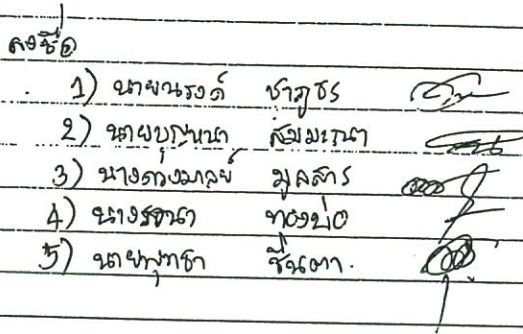 ลงชื่อ
1) นายณรงค์ ชาภูธร
2) นายบุญหนา
3) นางดวงมาลย์ มูลสาร
4) นางรจนา ทองบ่อ
5) นายพุทธา ชื่นตา.